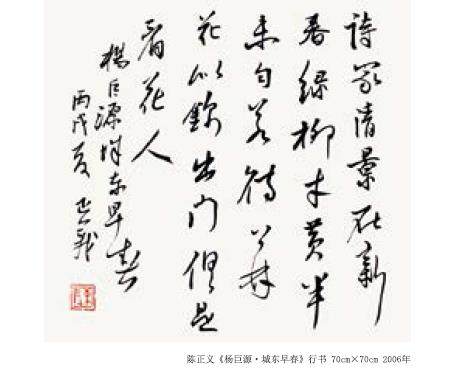 詩家清景在新
春绿柳才黄半
未匀若待上林
花似錦出门俱是
看花人
杨巨源城东早春
丙戌夏 正義
陈正义《杨巨源·城东早春》行书 70cm×70cm 2006年